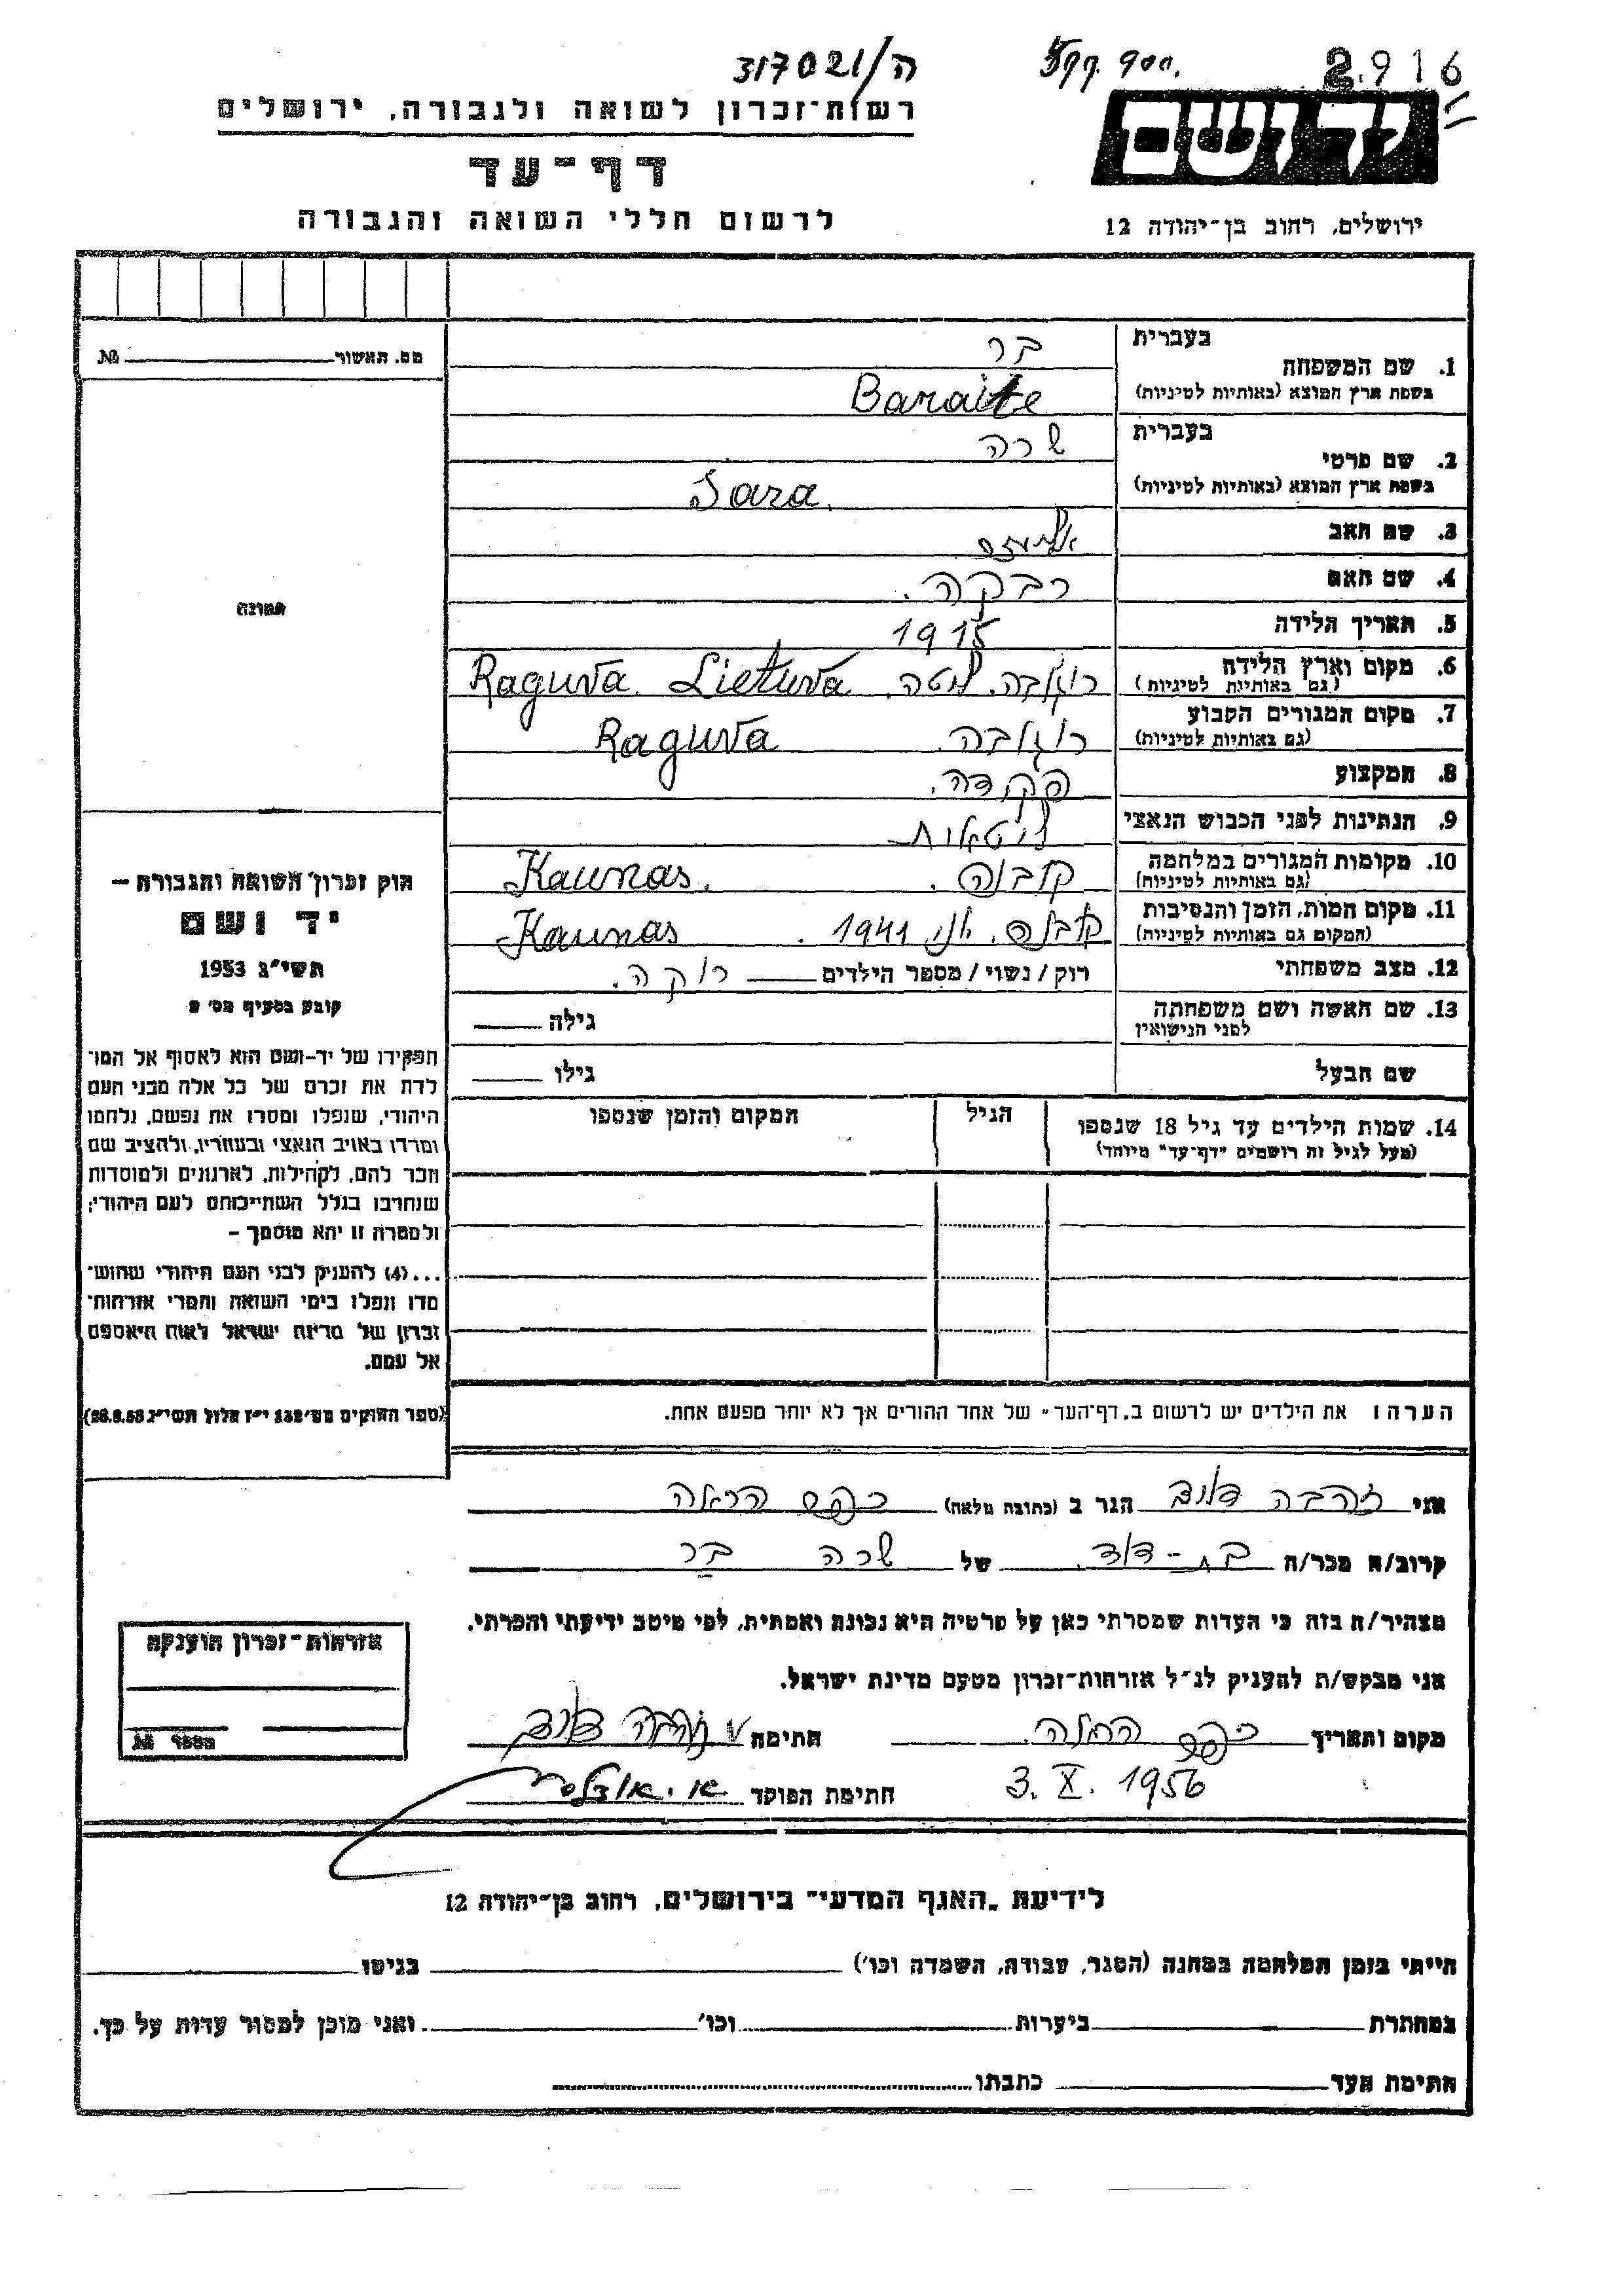 ה/317021
2.916
רשות-זכרון לשואה ולגבורה, ירושלים
יד ושם
דף-עד
לרשום חללי השואה והגבורה
ירושלים, רחוב בן-יהודה 12
מס. האשור № 
בעברית בר
1. שם המשפחה
בשפת ארץ המוצא (באותיות לטיניות) Baraite
בעברית שרה
2. שם פרטי
בשפת ארץ המוצא (באותיות לטיניות) Sara.
3. שם האב
4. שם האם רבקה.
5. תאריך הלידה 1915
6. מקום וארץ הלידה
(גם באותיות לטיניות) רוגובה. ליטה. Raguva. Lietuva
7. מקום המגורים הקבוע
(גם באותיות לטיניות) רוגובה. Raguva
8. המקצוע פקידה.
9. הנתינות לפני הכבוש הנאצי ליטאית
10. מקומות המגורים במלחמה
(גם באותיות לטיניות) קובנה. Kaunas.
11. מקום המות, הזמן והנסיבות
(המקום גם באותיות לטיניות) 1941. Kaunas
12. מצב משפחתי רוק / נשוי / מספר הילדים רוקה.
13. שם האשה ושם משפחתה
לפני הנישואין גילה
שם הבעל גילו
14. שמות הילדים עד גיל 18 שנספו
(מעל לגיל זה רושמים "דף-עד" מיוחד)
הגיל
המקום והזמן שנספו
הערה: את הילדים יש לרשום ב"דף-העד" של אחד ההורים אך לא יותר מפעם אחת.
תמונה
חוק זכרון השואה והגבורה –
יד ושם
תשי"ג 1953
קובע בסעיף מס' 2
תפקידו של יד-ושם הוא לאסוף אל המו־
לדת את זכרם של כל אלה מבני העם
היהודי, שנפלו ומסרו את נפשם, נלחמו
ומרדו באויב הנאצי ובעוזריו, ולהציב שם
וזכר להם, לקהילות, לארגונים ולמוסדות
שנחרבו בגלל השתייכותם לעם היהודי;
ולמטרה זו יהא מוסמך –
...(4) להעניק לבני העם היהודי שהוש־
מדו ונפלו בימי השואה והמרי אזרחות־
זכרון של מדינת ישראל לאות היאספם
אל עמם.
(ספר החוקים מס' 132 י"ז אלול תשי"ג 28.8.53)
אני זהבה הגר ב (כתובת מלאה) כפר הראה
קרוב/ה מכר/ה בת-דוד. של שרה בר
מצהיר/ה בזה כי העדות שמסרתי כאן על פרטיה היא נכונה ואמתית, לפי מיטב ידיעתי והכרתי.
אני מבקש/ת להעניק לנ"ל אזרחות-זכרון מטעם מדינת ישראל.
מקום ותאריך כפר הראה. חתימה זהבה
3. X. 1956 חתימת הפוקד
אזרחות-זכרון הוענקה
מספר №
לידיעת "האגף המדעי" בירושלים, רחוב בן-יהודה 12
הייתי בזמן המלחמה במחנה (הסגר, עבודה, השמדה וכו') בגיטו
במחתרת ביערות וכו' ואני מוכן למסור עדות על כך.
חתימת העד כתבתו